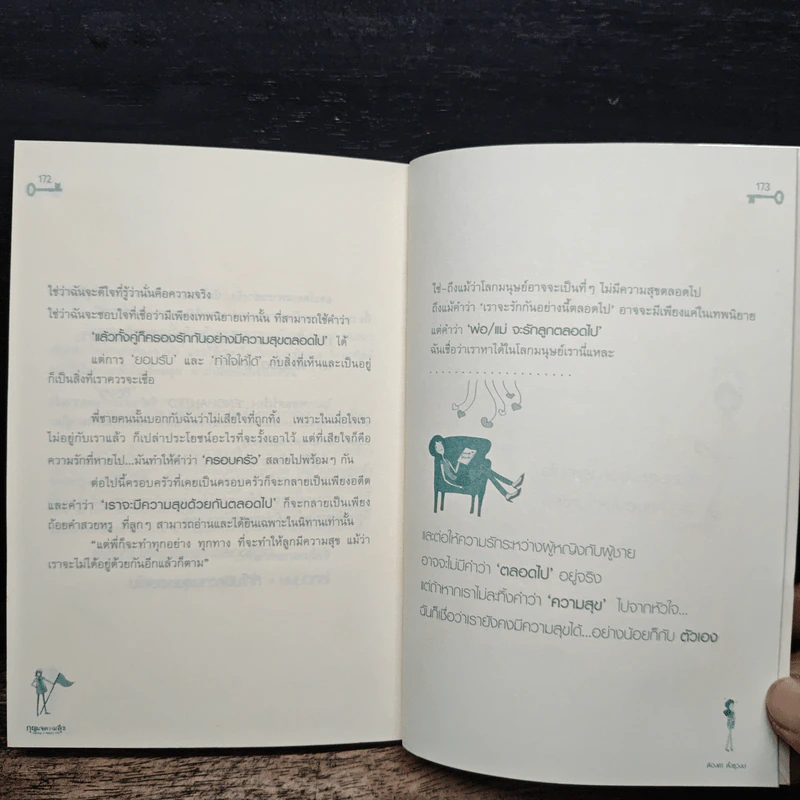 172
ใช่ว่าฉันจะดีใจที่รู้ว่านั่นคือความจริง
ใช่ว่าฉันจะชอบใจที่เชื่อว่ามีเพียงเทพนิยายเท่านั้น ที่สามารถใช้คำว่า
'แล้วทั้งคู่ก็ครองรักกันอย่างมีความสุขตลอดไป' ได้
แต่การ 'ยอมรับ' และ 'ทำใจให้ได้' กับสิ่งที่เห็นและเป็นอยู่
ก็เป็นสิ่งที่เราควรจะเชื่อ
พี่ชายคนนั้นบอกกับฉันว่าไม่เสียใจที่ถูกทิ้ง เพราะในเมื่อใจเขา
ไม่อยู่กับเราแล้ว ก็เปล่าประโยชน์อะไรที่จะรั้งเอาไว้ แต่ที่เสียใจก็คือ
ความรักที่หายไป...มันทำให้คำว่า 'ครอบครัว' สลายไปพร้อมๆ กัน
ต่อไปนี้ครอบครัวที่เคยเป็นครอบครัวก็จะกลายเป็นเพียงอดีต
และคำว่า 'เราจะมีความสุขด้วยกันตลอดไป' ก็จะกลายเป็นเพียง
ถ้อยคำสวยหรู ที่ลูกๆ สามารถอ่านและได้ยินเฉพาะในนิทานเท่านั้น
"แต่พี่ก็จะทำทุกอย่าง ทุกทาง ที่จะทำให้ลูกมีความสุข แม้ว่า
เราจะไม่ได้อยู่ด้วยกันอีกแล้วก็ตาม"
กุญแจความสุข
173
ใช่-ถึงแม้ว่าโลกมนุษย์อาจจะเป็นที่ๆ ไม่มีความสุขตลอดไป
ถึงแม้คำว่า 'เราจะรักกันอย่างนี้ตลอดไป' อาจจะมีเพียงแค่ในเทพนิยาย
แต่คำว่า 'พ่อ/แม่ จะรักลูกตลอดไป'
ฉันเชื่อว่าเราหาได้ในโลกมนุษย์เรานี่แหละ
......................
และต่อให้ความรักระหว่างผู้หญิงกับผู้ชาย
อาจจะไม่มีคำว่า 'ตลอดไป' อยู่จริง
แต่ถ้าหากเราไม่ละทิ้งคำว่า 'ความสุข' ไปจากหัวใจ...
ฉันก็เชื่อว่าเรายังคงมีความสุขได้...อย่างน้อยก็กับ ตัวเอง